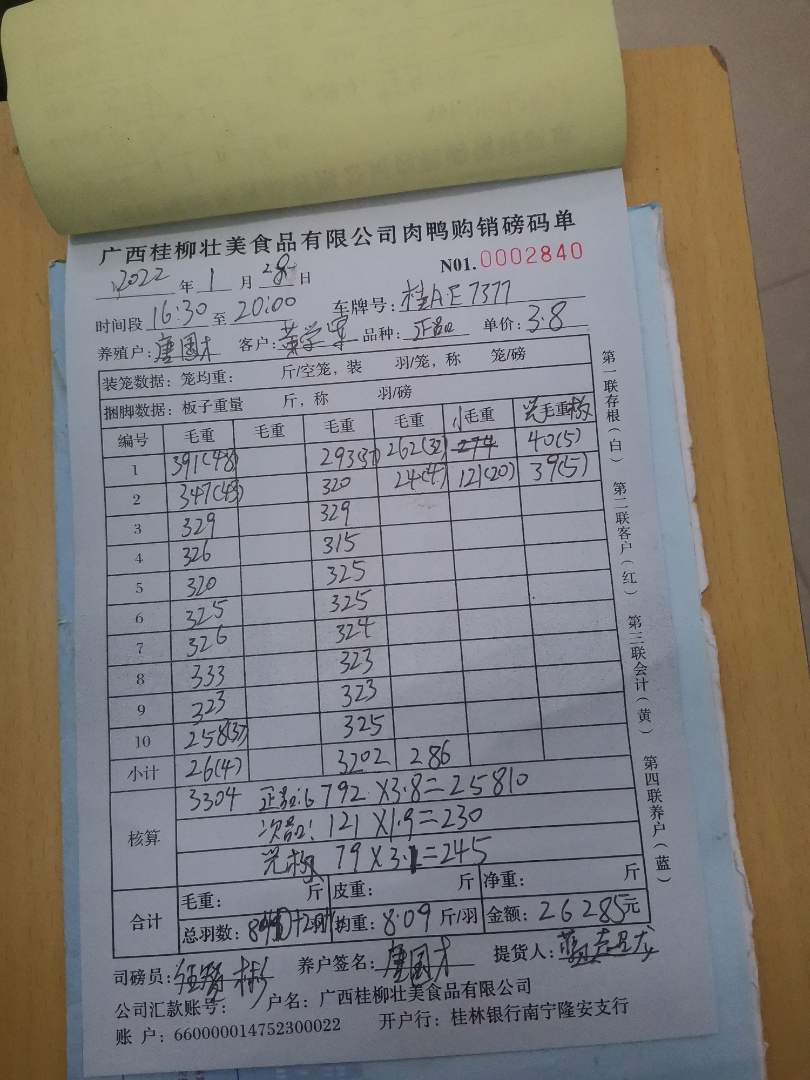 广西桂柳壮美食品有限公司肉鸭购销磅码单
2022 年 1 月 28 日 N01.0002840
时间段 16:30 至 20:00 车牌号: 桂A·E7377
养殖户: 唐国才 客户: 黄学军 品种: 正品 单价: 3.8
装笼数据: 笼均重: 斤/空笼, 装 羽/笼, 称 笼/磅
捆脚数据: 板子重量 斤, 称 羽/磅
编号 毛重 毛重 毛重 毛重 小毛重 毛重
1 391(48) 293(37) 262(32) 274 40(5)
2 347(43) 320 24(4) 121(20) 39(5)
3 329 329
4 326 315
5 320 325
6 325 325
7 326 324
8 333 323
9 323 323
10 258(37) 325
小计 26(4) 3202 286
核算 3304 正品: 6792 X3.8=25810
次品: 121 X1.9=230
79 X3.1=245
合计 毛重: 斤 皮重: 斤 净重: 斤
总羽数: 羽 均重: 8.09 斤/羽 金额: 26285元
司磅员: 养户签名: 唐国才 提货人:
公司汇款账号: 户名: 广西桂柳壮美食品有限公司
账 户: 660000014752300022 开户行: 桂林银行南宁隆安支行
第一联存根(白) 第二联客户(红) 第三联会计(黄) 第四联养户(蓝)